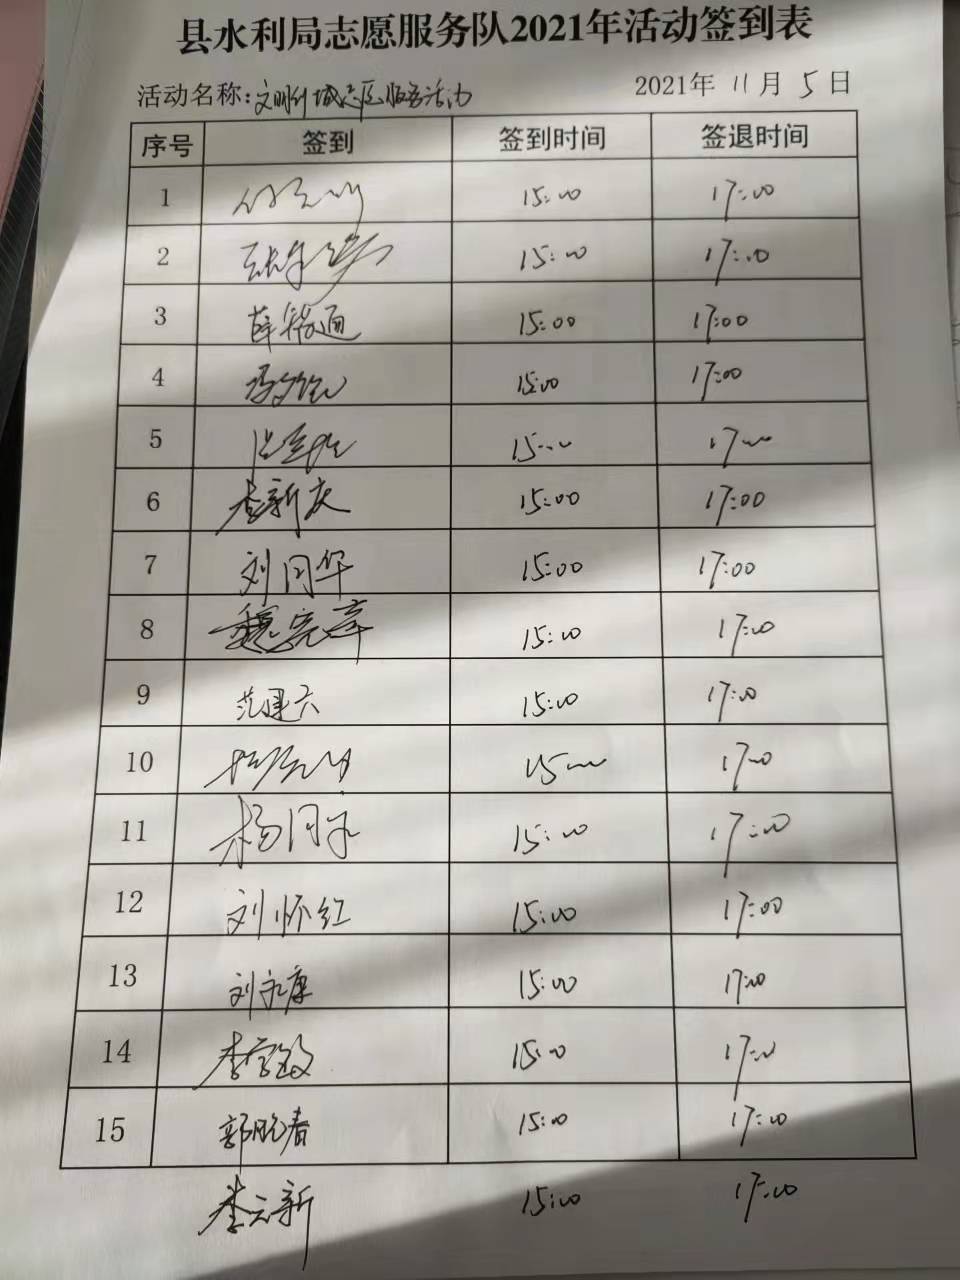 县水利局志愿服务队2021年活动签到表
活动名称:文明 城志愿服务活动 2021年11月5日
序号 签到 签到时间 签退时间
1 15:00 17:00
2 15:00 17:00
3 薛 通 15:00 17:00
4 15:00 17:00
5 15:00 17:00
6 李新友 15:00 17:00
7 刘同华 15:00 17:00
8 魏宪 15:00 17:00
9 范建六 15:00 17:00
10 15:00 17:00
11 杨同 15:00 17:00
12 刘怀红 15:00 17:00
13 刘永康 15:00 17:00
14 李 15:00 17:00
15 郭晓春 15:00 17:00
李云新 15:00 17:00